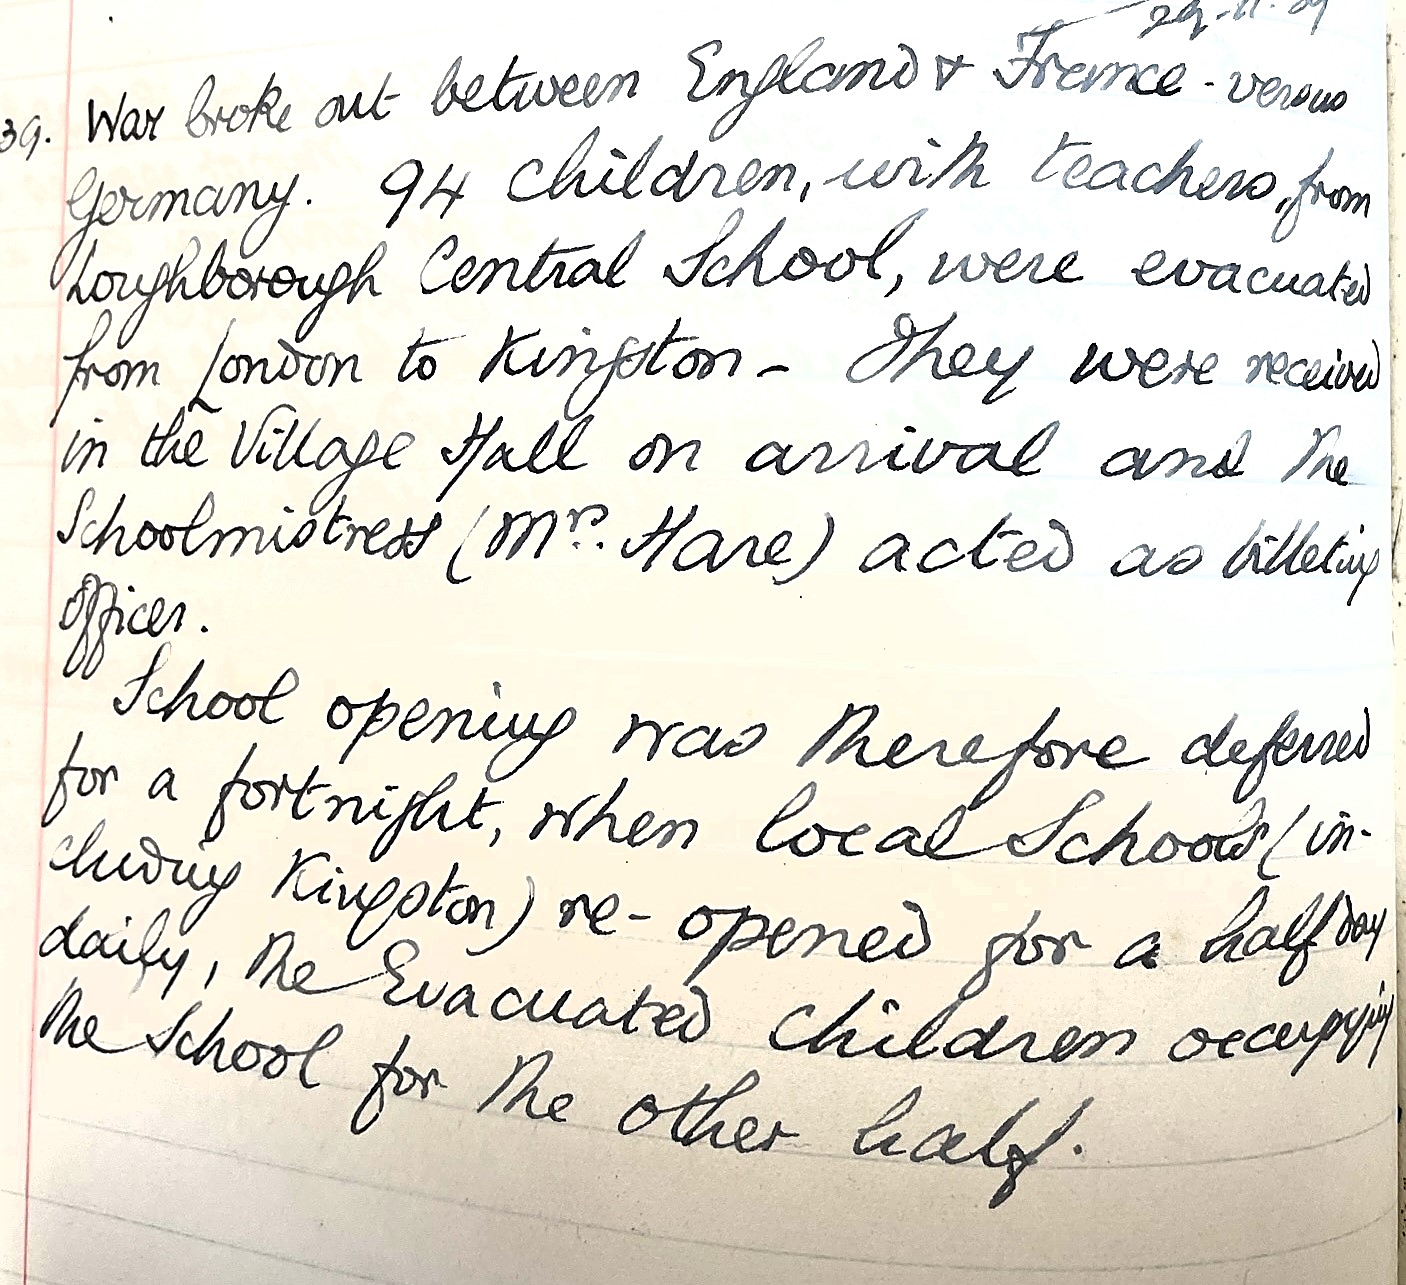 39. War broke out between England & France - versus
Germany. 94 children, with teachers, from
Loughborough Central School, were evacuated
from London to Kingston - They were received
in the Village Hall on arrival and the
Schoolmistress (Mrs. Hare) acted as billeting
officer.
School opening was therefore deferred
for a fortnight, when local Schools (in-
cluding Kingston) re-opened for a half day
daily, the Evacuated children occupying
the School for the other half.